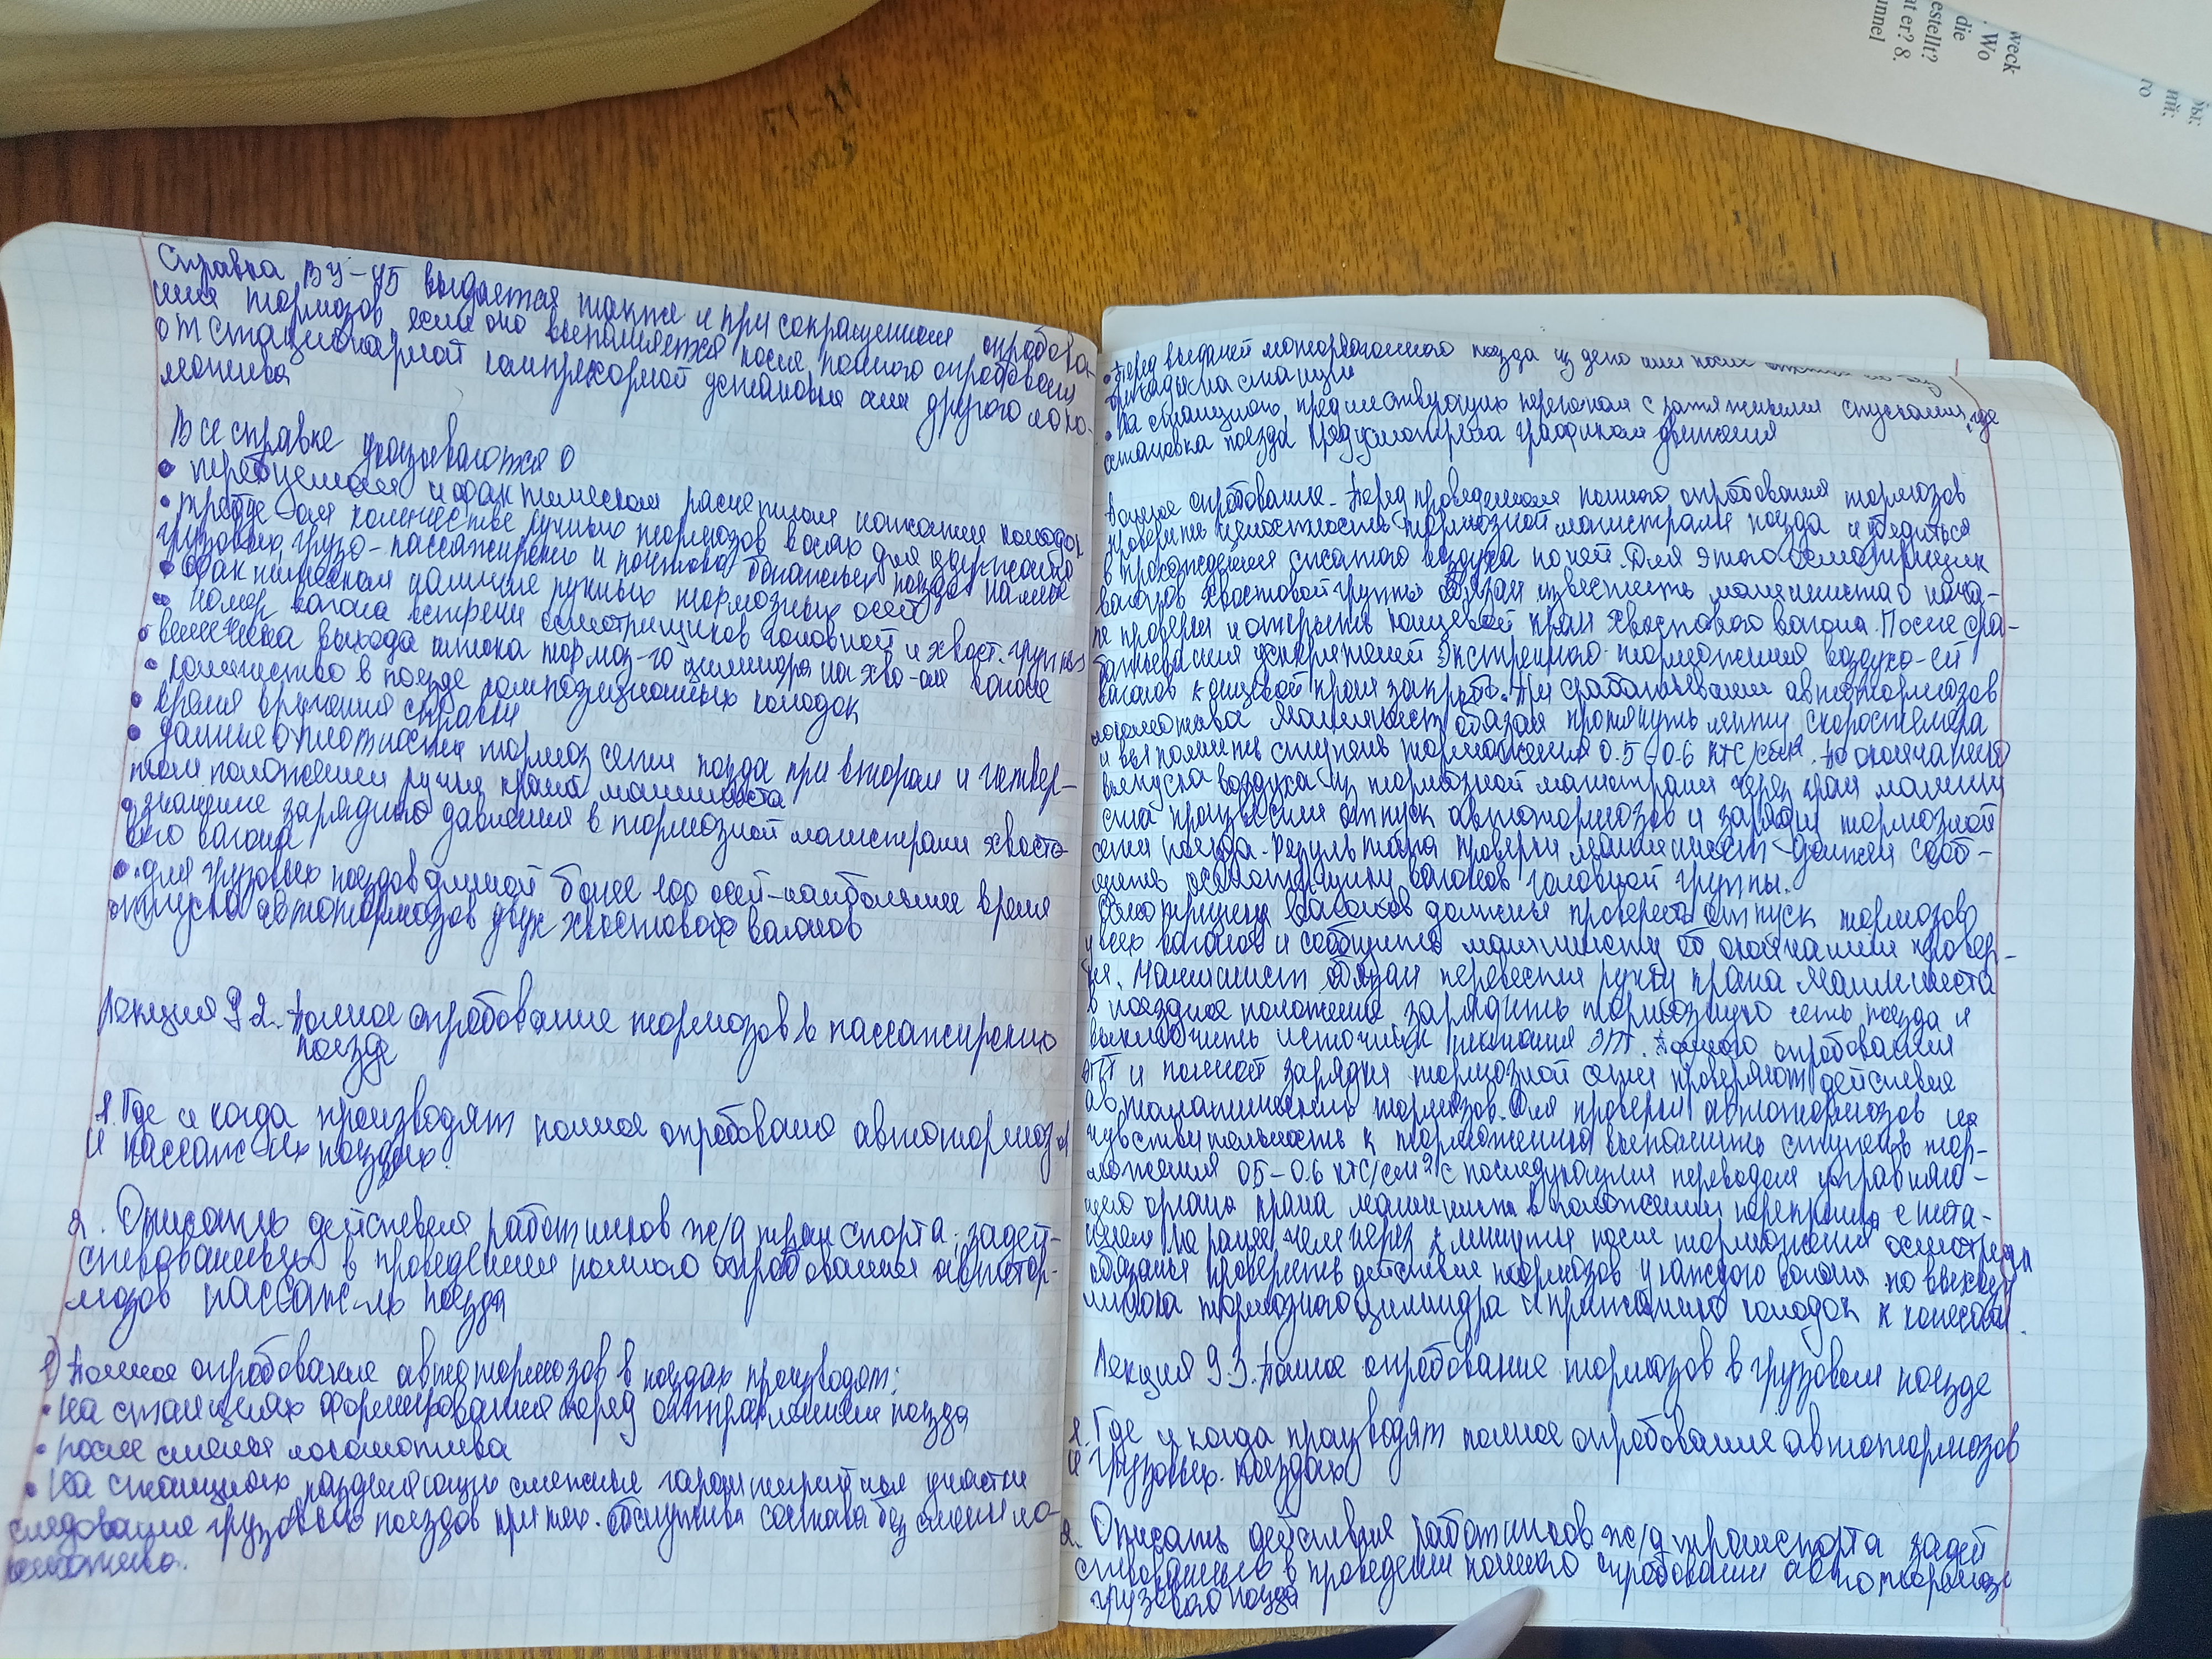 Справка ВУ-45 выдается также и при сокращенном опробова-
нии тормозов если оно выполняется после полного опробования
от стационарной компрессорной установки или другого локо-
мотива
В справке указываются о
• потребном и фактическом расчетном нажатии колодок
• требуемом количестве ручных тормозов в осях для удержания
грузовых, грузо-пассажирских и почтово багажных поездов на месте
• фактическом наличие ручных тормозных осей
• номер вагона встречи осмотрщиков головной и хвост. группы
• величина выхода штока тормоз-го цилиндра на хво-ом вагоне
• количество в поезде композиционных колодок
• время вручения справки
• данные о плотности тормоз сети поезда при втором и четвер-
том положении ручки крана машиниста
• значение зарядного давления в тормозной магистрали хвосто-
вого вагона
• для грузовых поездов длиной более 100 осей-наибольшее время
отпуска автотормозов двух хвостовых вагонов
Лекция 9 2. Полное опробование тормозов в пассажирских
поезде
1. Где и когда производят полное опробование автотормозов
в пассаж-их поездах.
2. Описать действия работников ж/д транспорта. задей-
ствованных в проведении полного опробования автотор-
мозов пассаж-го поезда
1) Полное опробование автотормозов в поездах производят:
• на станциях формирования перед отправлением поезда
• после смены локомотива
• на станциях разделяющих смежные гарантийные участки
следования грузовых поездов при тех. обслужива состава без смены ло-
комотива.
• Перед выдачей моторвагонного поезда из депо или после отстоя его без
бригады на станции
• На станциях, предшествующих перегонам с затяжными спусками, где
остановка поезда предусмотрена графиком движения
Полное опробование - Перед проведением полного опробования тормозов
проверить целостность тормозной магистрали поезда и убедиться
в прохождении сжатого воздуха по ней. Для этого осмотрщик
вагонов хвостовой группы обязан известить машиниста о нача-
ле проверки и открыть концевой кран хвостового вагона. После сра-
батывания ускорителей экстренного торможения воздухо-ей
вагонов концевой кран закрыть. При срабатывании автотормозов
локомотива машинист обязан протянуть ленту скоростемера
и выполнить ступень торможения 0.5-0.6 КГС/см². По окончании
выпуска воздуха из тормозной магистрали через кран машини
ста произвести отпуск автотормозов и зарядку тормозной
сети поезда. Результаты проверки машинист должен сооб-
щить осмотрщику вагонов головной группы.
Осмотрщики вагонов должны проверить отпуск тормозов
у всех вагонов и сообщить машинисту об окончании провер-
ки. Машинист обязан перевести ручку крана машиниста
в поездное положение зарядить тормозную сеть поезда и
выключить источник питания ЭПТ. полного опробования
ЭПТ и полной зарядки тормозной сети проверяют действие
автоматических тормозов. Для проверки автотормозов на
чувствительность к торможению выполнить ступень тор-
можения 0.5-0.6 КГС/см² с последующим переводом управляю-
щего органа крана машиниста в положении перекрыша с пита-
нием Не ранее чем через 2 минуты после торможения осмотрщики
обязаны проверить действие тормозов у каждого вагона по выходу
штока тормозного цилиндра и прижатию колодок к колесам.
Лекция 9.3. Полное опробование тормозов в грузовом поезде
1. Где и когда производят полное опробование автотормозов
в грузовых поездах
2. Описать действия работников ж/д транспорта задей
ствованных в проведении полного опробовании автотормозо
грузового поезда
weck
. Wo
die
estellt?
at er? 8.
mmel